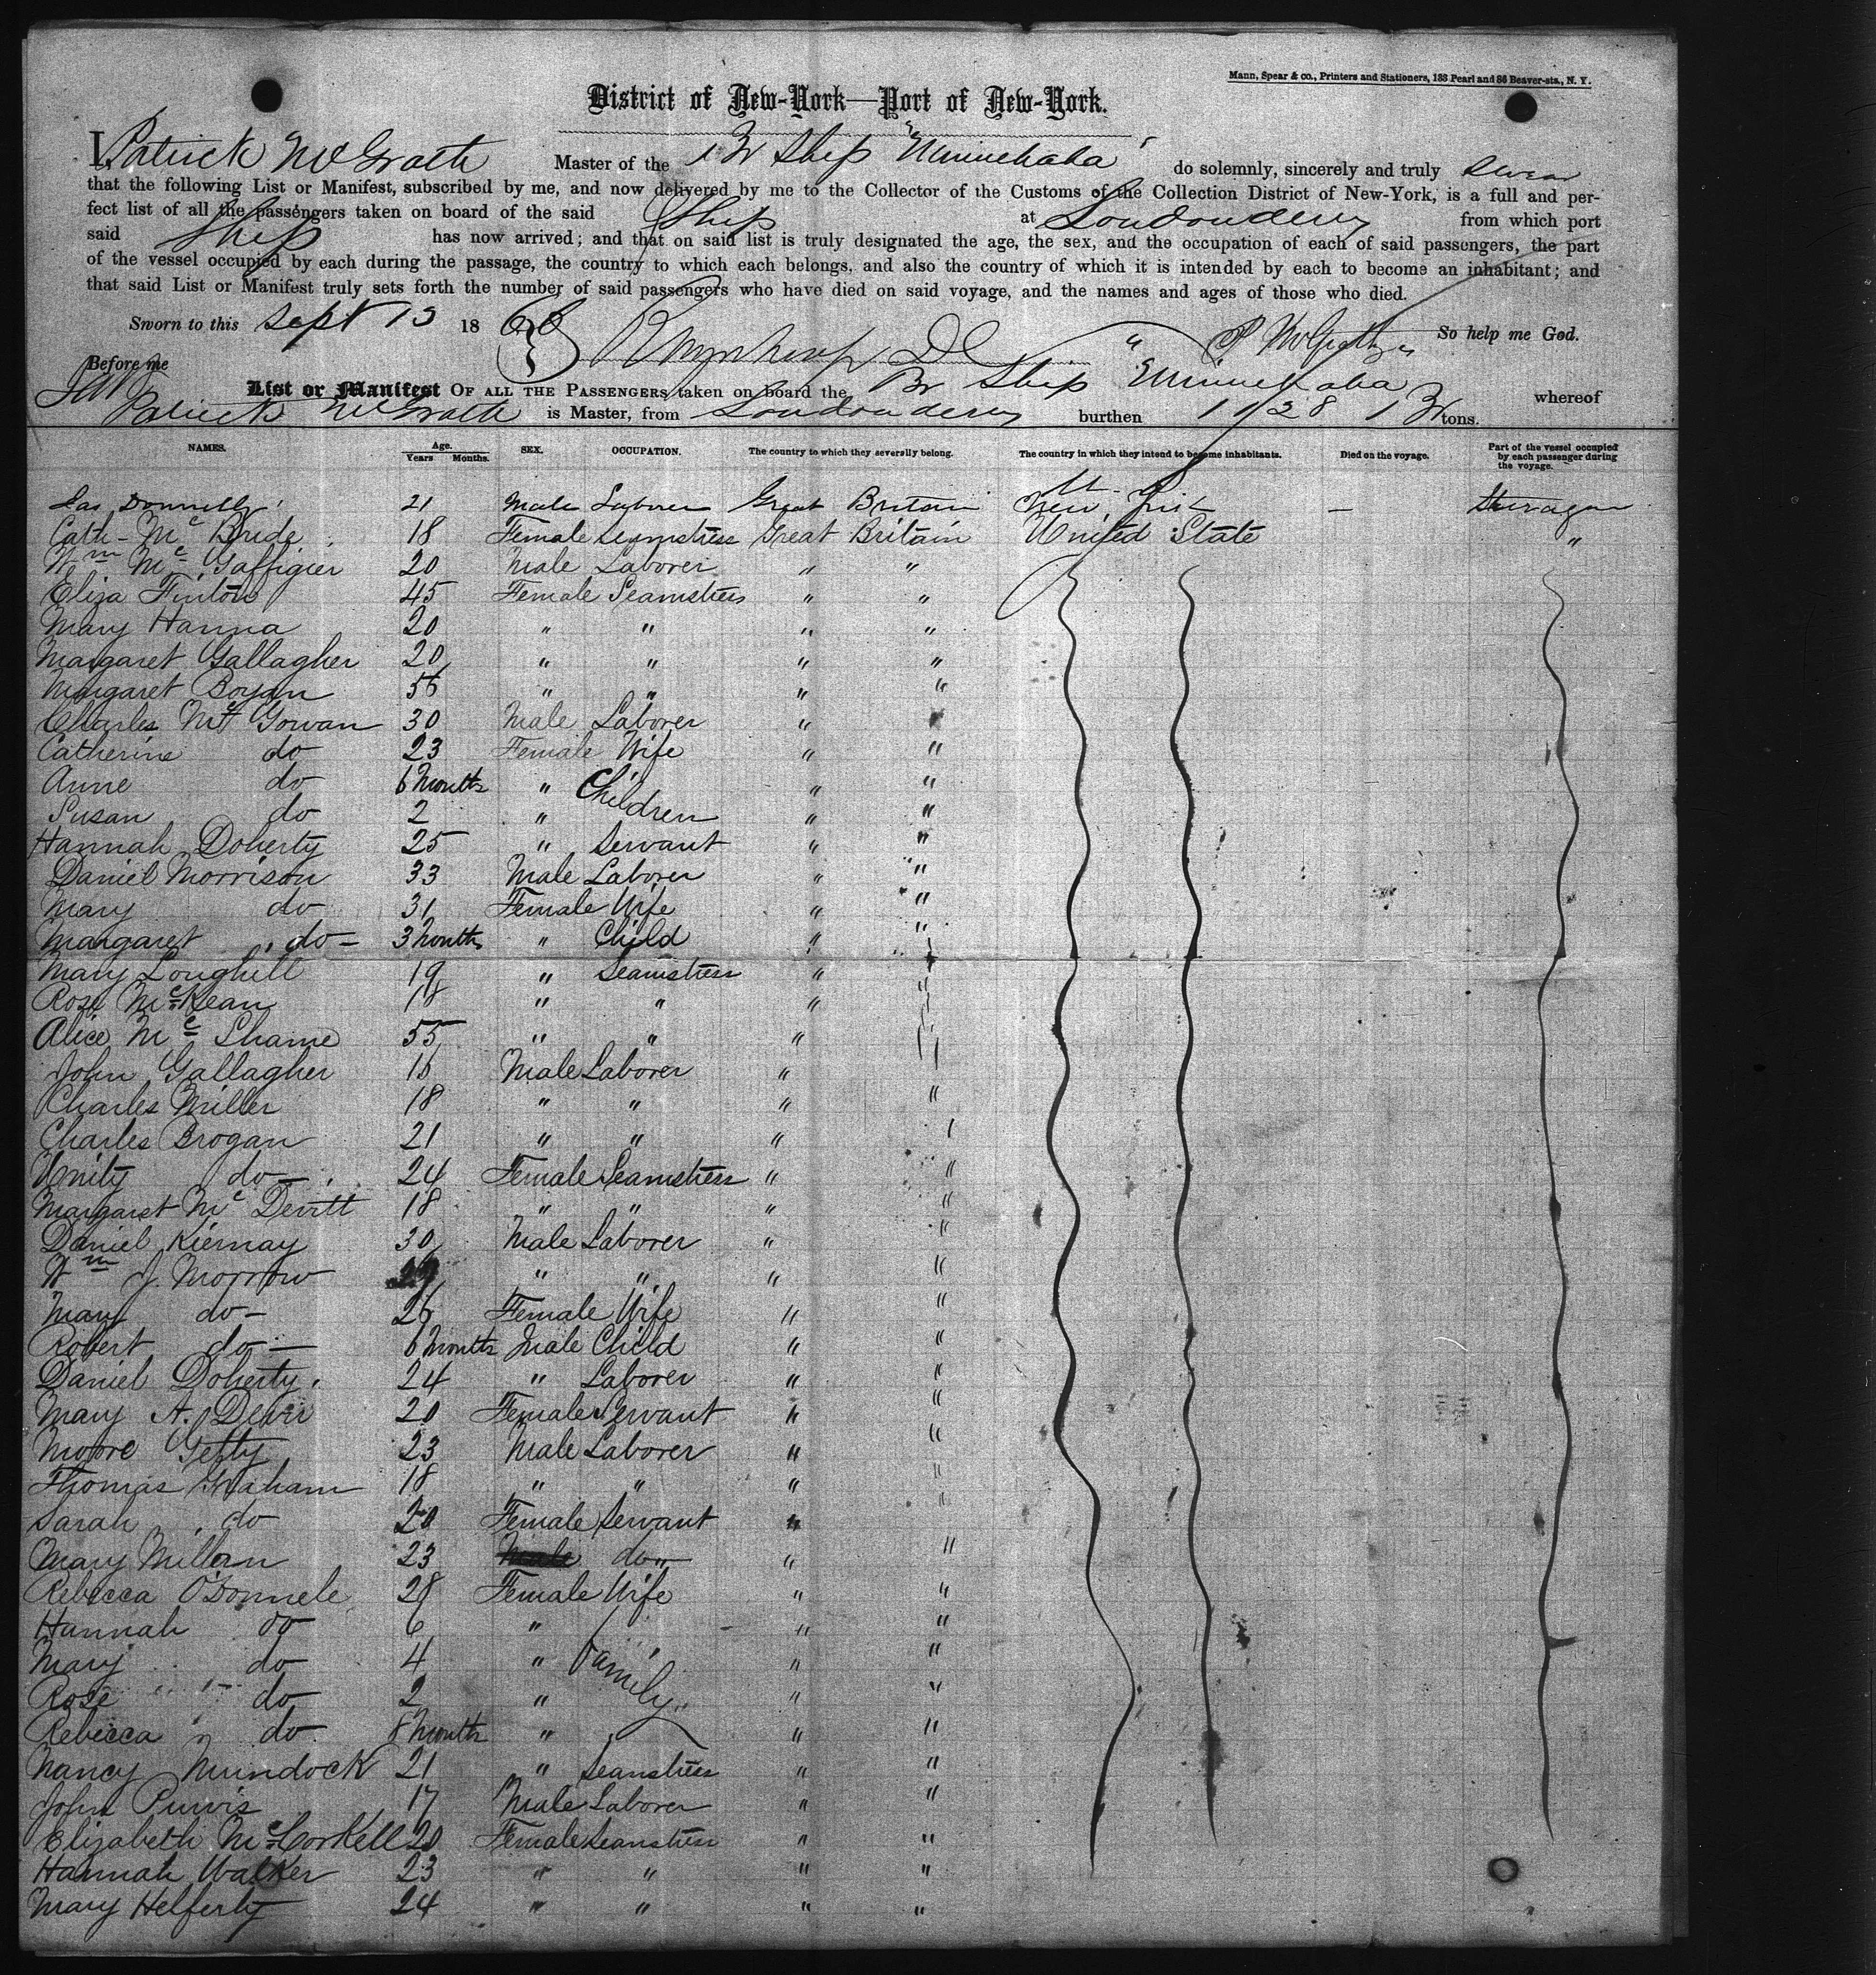 Mann, Spear & co., Printers and Stationers, 183 Pearl and 86 Beaver-sts., N. Y.
District of New-York—Port of New-York.
I, Patrick McGrath Master of the Br Ship "Minnehaha" do solemnly, sincerely and truly swear
that the following List or Manifest, subscribed by me, and now delivered by me to the Collector of the Customs of the Collection District of New-York, is a full and per-
fect list of all the passengers taken on board of the said Ship at Londonderry from which port
said Ship has now arrived; and that on said list is truly designated the age, the sex, and the occupation of each of said passengers, the part
of the vessel occupied by each during the passage, the country to which each belongs, and also the country of which it is intended by each to become an inhabitant; and
that said List or Manifest truly sets forth the number of said passengers who have died on said voyage, and the names and ages of those who died.
Sworn to this Sept 13 18 P McGrath So help me God.
Before me
List or Manifest OF ALL THE PASSENGERS taken on board the Br Ship "Minnehaha whereof
Patrick McGrath is Master, from Londonderry burthen tons.
NAMES. Age. Years Months. SEX. OCCUPATION. The country to which they severally belong. The country in which they intend to become inhabitants. Died on the voyage. Part of the vessel occupied by each passenger during the voyage.
Jas Donnelly 21 Male Laborer Great Britain New York — Steerage
Cath- Mc Bride 18 Female Seamstress Great Britain United State "
Wm Mc Gaffigier 20 Male Laborer " "
Eliza Finton 45 Female Seamstress " "
Mary Hanna 20 " " " "
Margaret Gallagher 20 " " " "
Margaret Boyan 56 " " " "
Charles Mc Gowan 30 Male Laborer " "
Catherine do 23 Female Wife " "
Anne do 6 Months " Children " "
Susan do 2 " " "
Hannah Doherty 25 " Servant " "
Daniel Morrison 33 Male Laborer " "
Mary do 31 Female Wife " "
Margaret do — 3 Months " Child " "
Mary Loughill 19 " Seamstress " "
Rose McKean 18 " " " "
Alice Mc Shane 55 " " " "
John Gallagher 15 Male Laborer " "
Charles Miller 18 " " " "
Charles Brogan 21 " " " "
Unity do — 24 Female Seamstress " "
Margaret Mc Devitt 18 " " " "
Daniel Kiernay 30 Male Laborer " "
Wm J. Morrow " " " "
Mary do — 26 Female Wife " "
Robert do — 6 Months Male Child " "
Daniel Doherty 24 " Laborer " "
Mary A. Devir 20 Female Servant " "
Moore Getty 23 Male Laborer " "
Thomas Graham 18 " " " "
Sarah do 20 Female Servant "
Mary Millan 23 do " "
Rebecca O'Donnele 28 Female Wife " "
Hannah do 6 " " "
Mary do 4 " Family " "
Rose do 2 " " "
Rebecca do 8 Months " " "
Nancy Murdock 21 " Seamstress " "
John Purvis 17 Male Laborer " "
Elizabeth McCorkell 20 Female Seamstress " "
Hannah Walker 23 " " " "
Mary Helferty 24 " " " "